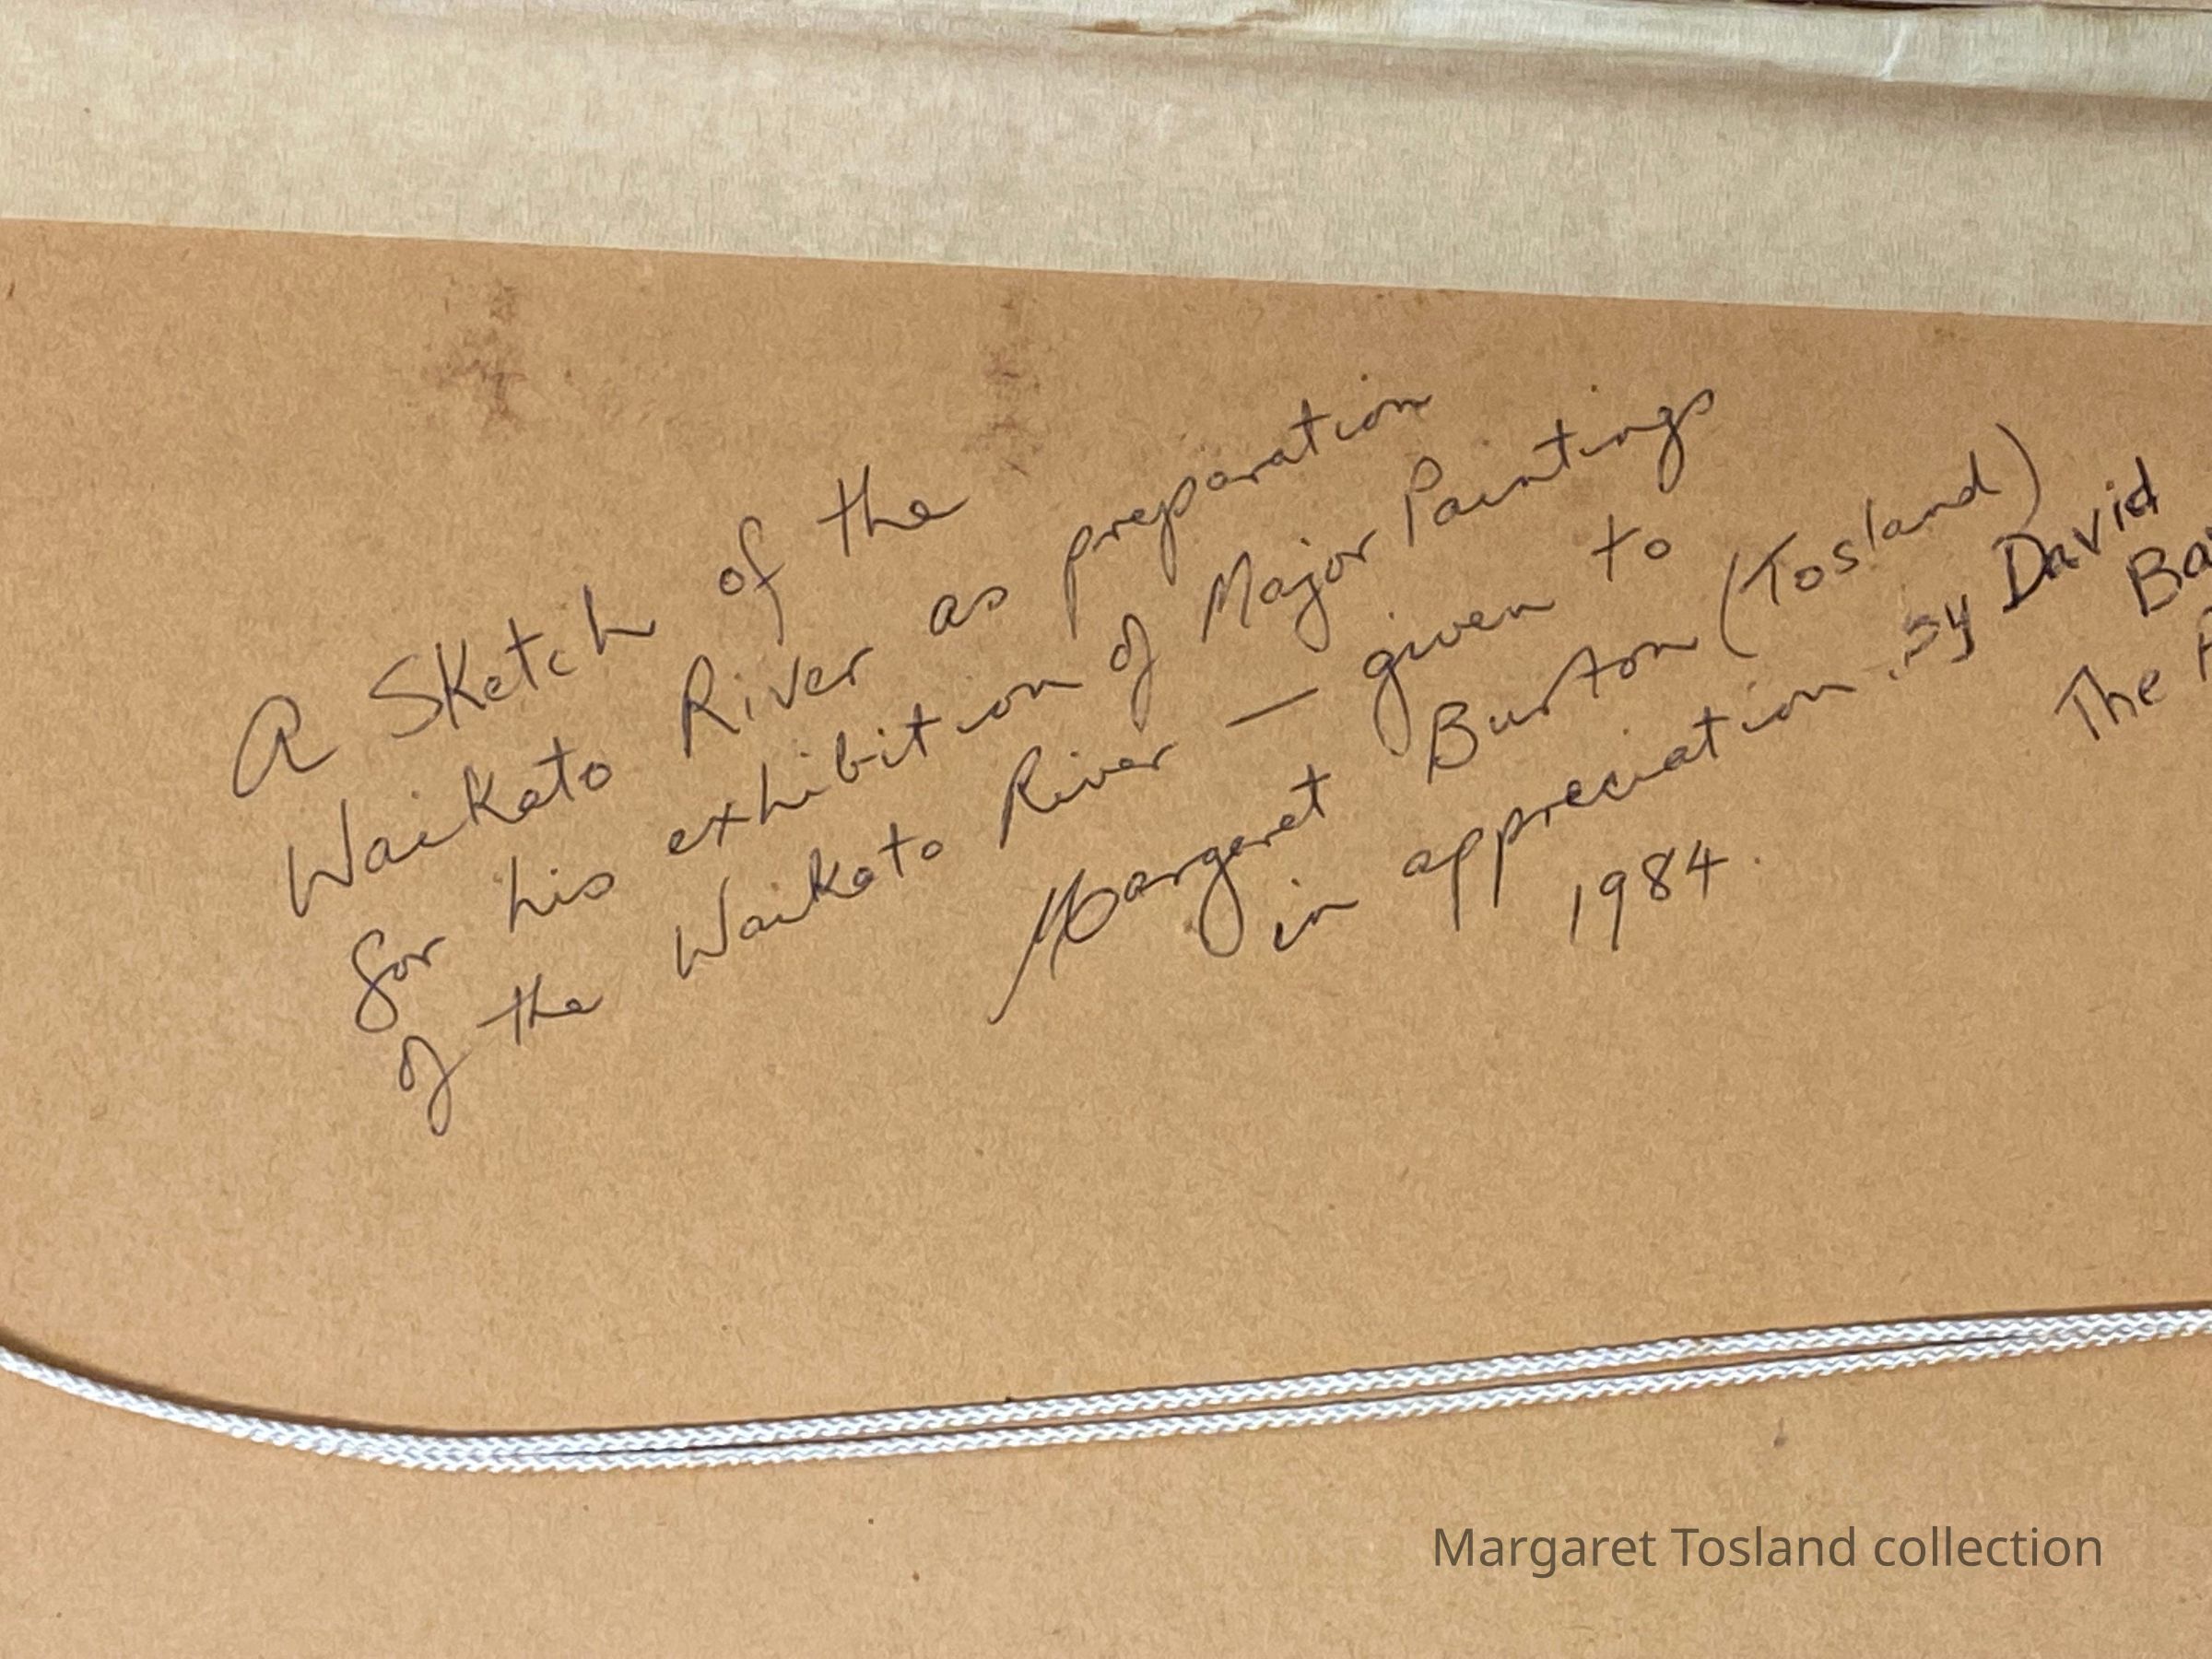 A Sketch of the
Waikato River as preparation
for his exhibition of Major Paintings
of the Waikato River — given to
Margaret Burton (Tosland)
in appreciation. by David
Ba
The
1984.
Margaret Tosland collection